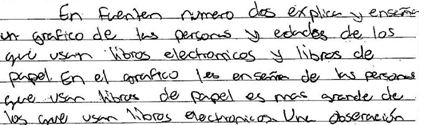 En fuenten numero dos explica y enseña
un grafico de las personas y edades de los
que usan libros electronicos y libros de
papel. En el grafico les enseña de las personas
que usan libros de papel es mas grande de
los que usan libros electronicos. Una obseración